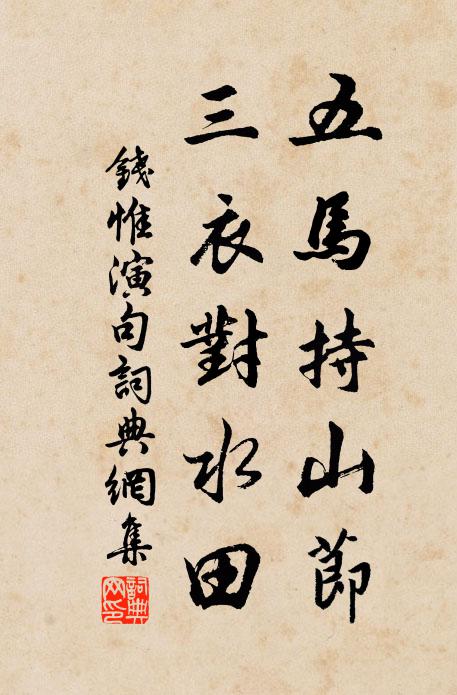 五馬持山節
三衣對水田
錢惟演句詞典網集
詞典
网印